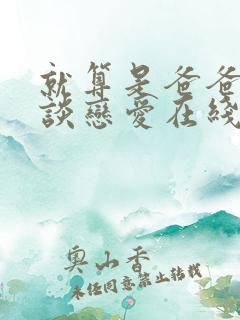 就算是爸爸
談戀愛在綫
奧山香
未经同意禁止转载